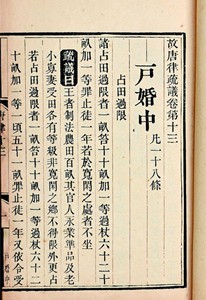 故唐律疏議卷第十三
戶婚中 凡一十八條
占田過限
諸占田過限者一畝笞十十畝加一等過杖六十二十
畝加一等罪止徒一年若於寬閑之處者不坐
疏議曰王者制法農田百畝其官人永業準品及老
小寡妻受田各有等級非寬閑之鄉不得限外更占
若占田過限者一畝笞十十畝加一等過杖六十二
十畝加一等一頃五十一畝罪止徒一年又依令受